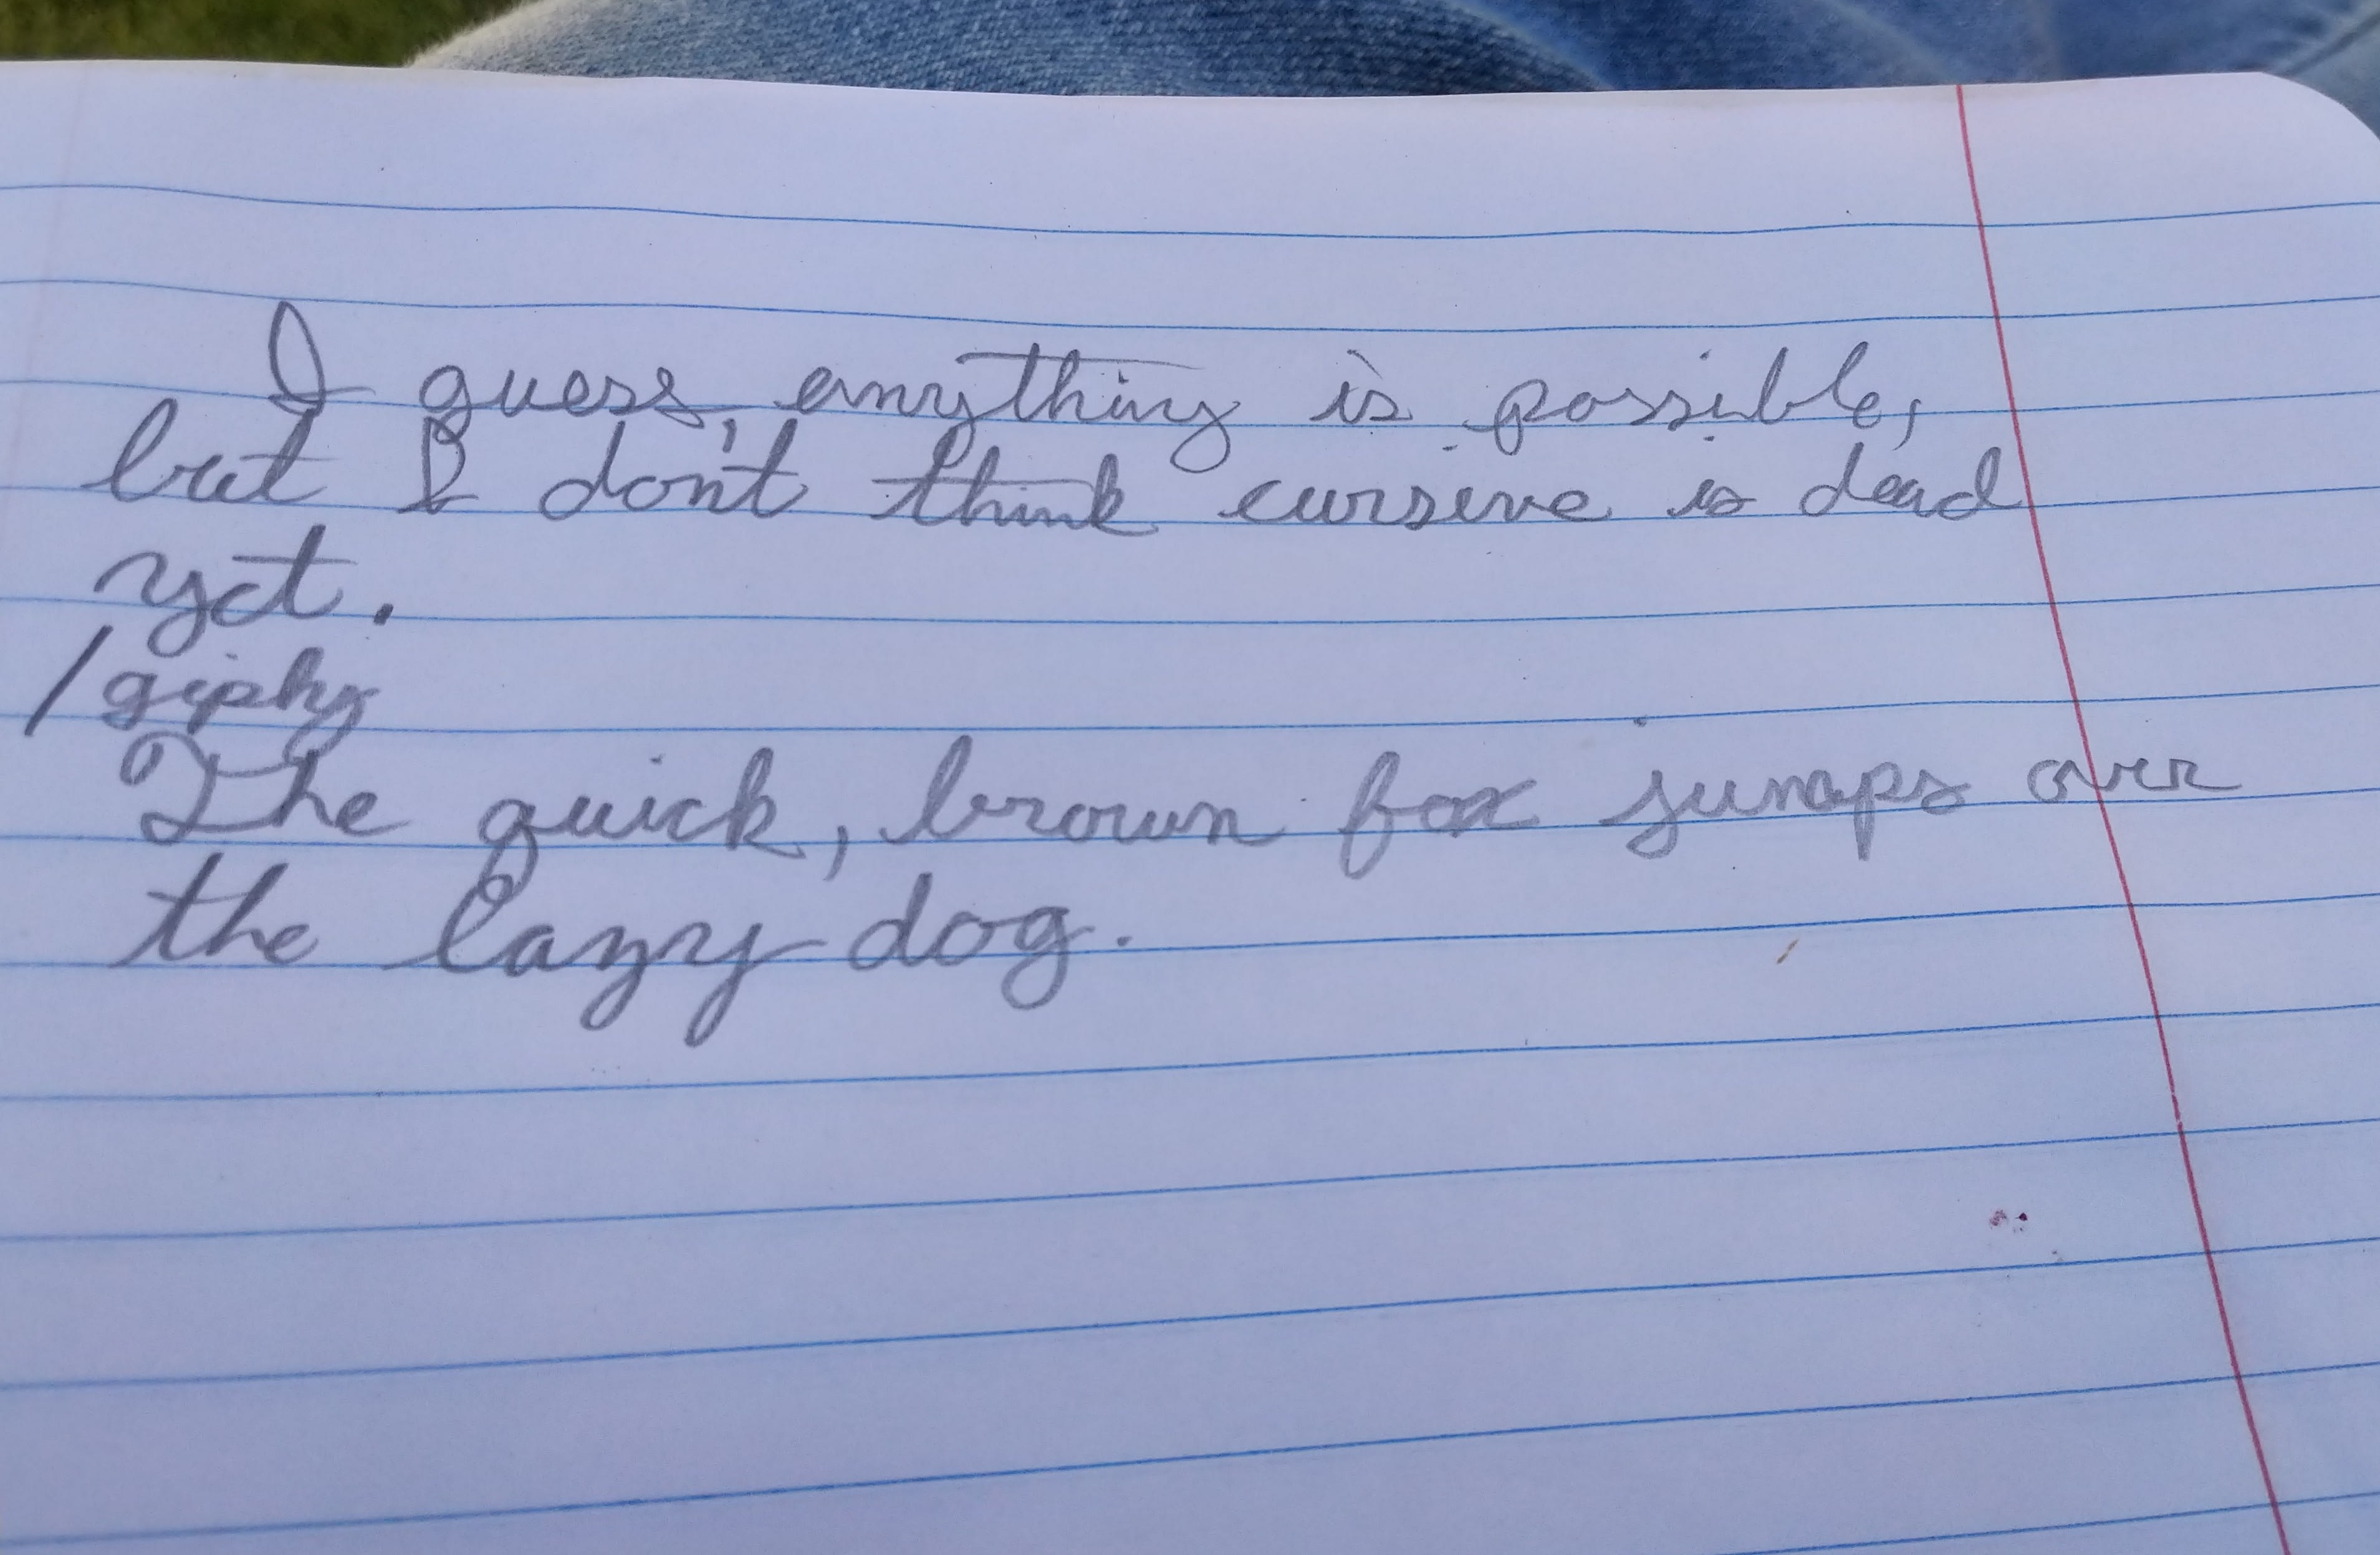 I guess anything is possible,
but I don't think cursive is dead
yet.
/giphy
The quick, brown fox jumps over
the lazy dog.